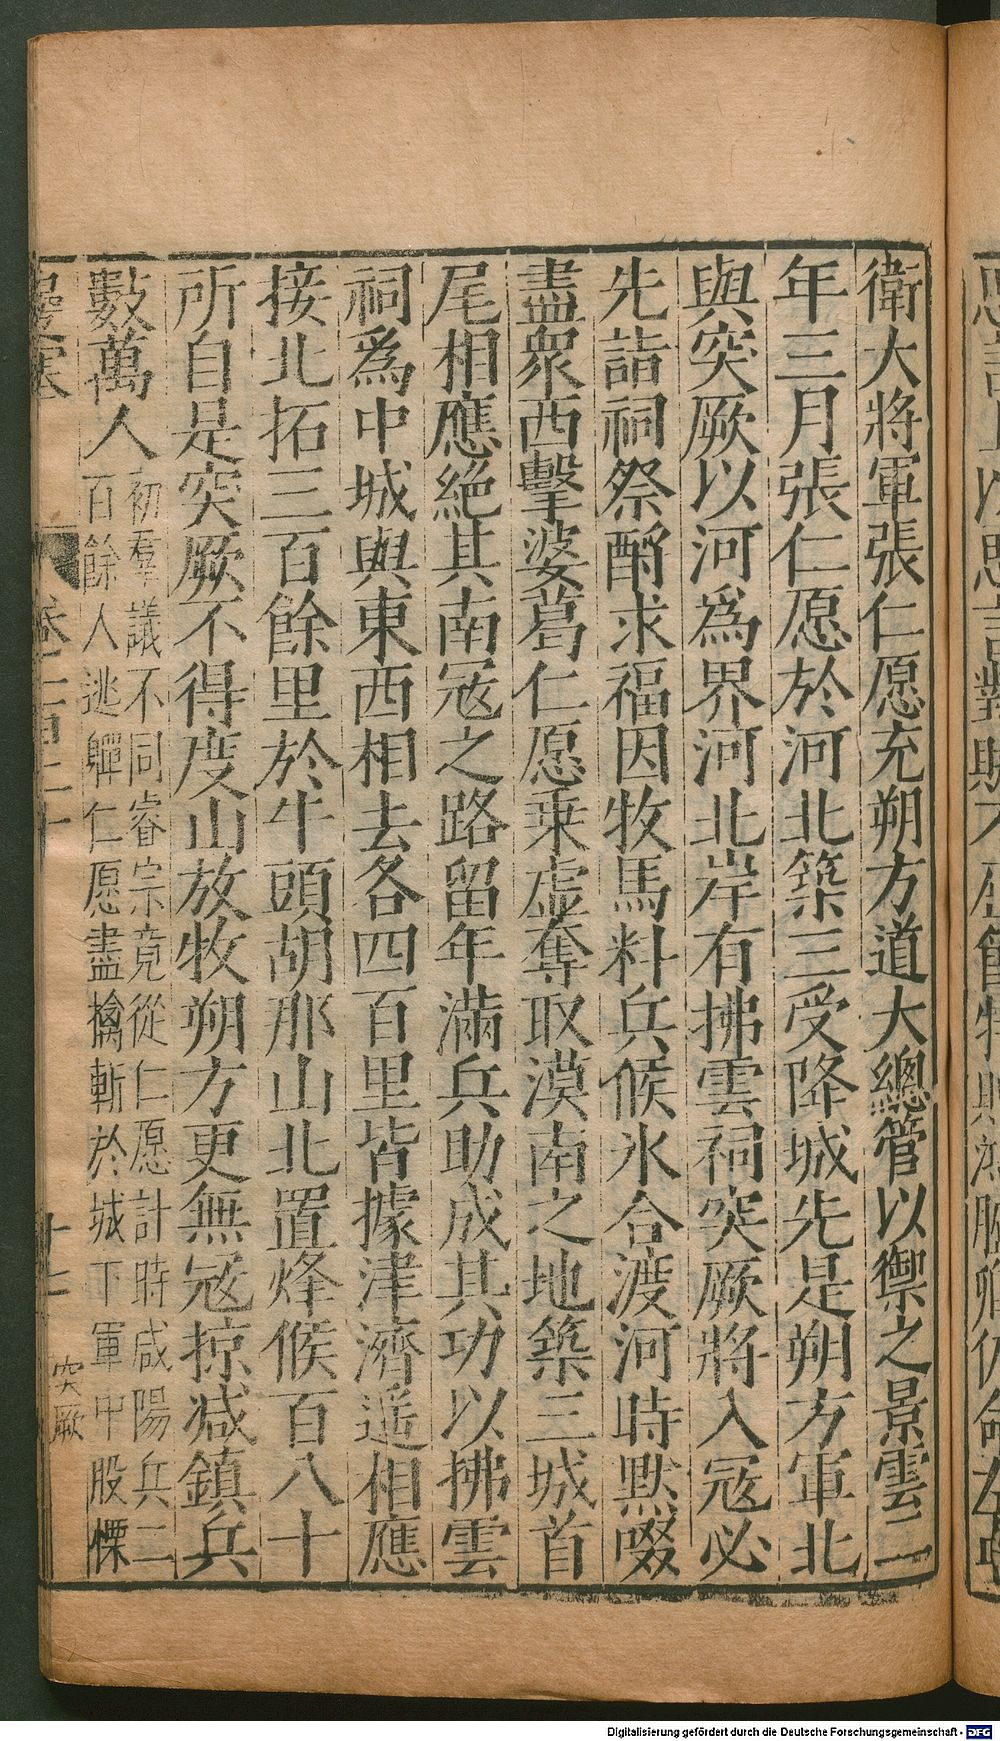 衛大將軍張仁愿充朔方道大總管以禦之景雲二
年三月張仁愿於河北築三受降城先是朔方軍北
與突厥以河爲界河北岸有拂雲祠突厥將入宼必
先詣祠祭酹求福因牧馬料兵候氷合渡河時默啜
盡衆西擊婆葛仁愿乗虚奪取漠南之地築三城首
尾相應絶其南宼之路留年滿兵助成其功以拂雲
祠爲中城與東西相去各四百里皆據津濟遥相應
接北拓三百餘里於牛頭胡那山北置烽候百八十
所自是突厥不得度山放牧朔方更無宼掠减鎮兵
數萬人
初羣議不同睿宗竟從仁愿計時咸陽兵二
百餘人逃歸仁愿盡擒斬於城下軍中股慄
十七
突厥
Digitalisierung gefördert durch die Deutsche Forschungsgemeinschaft - DFG